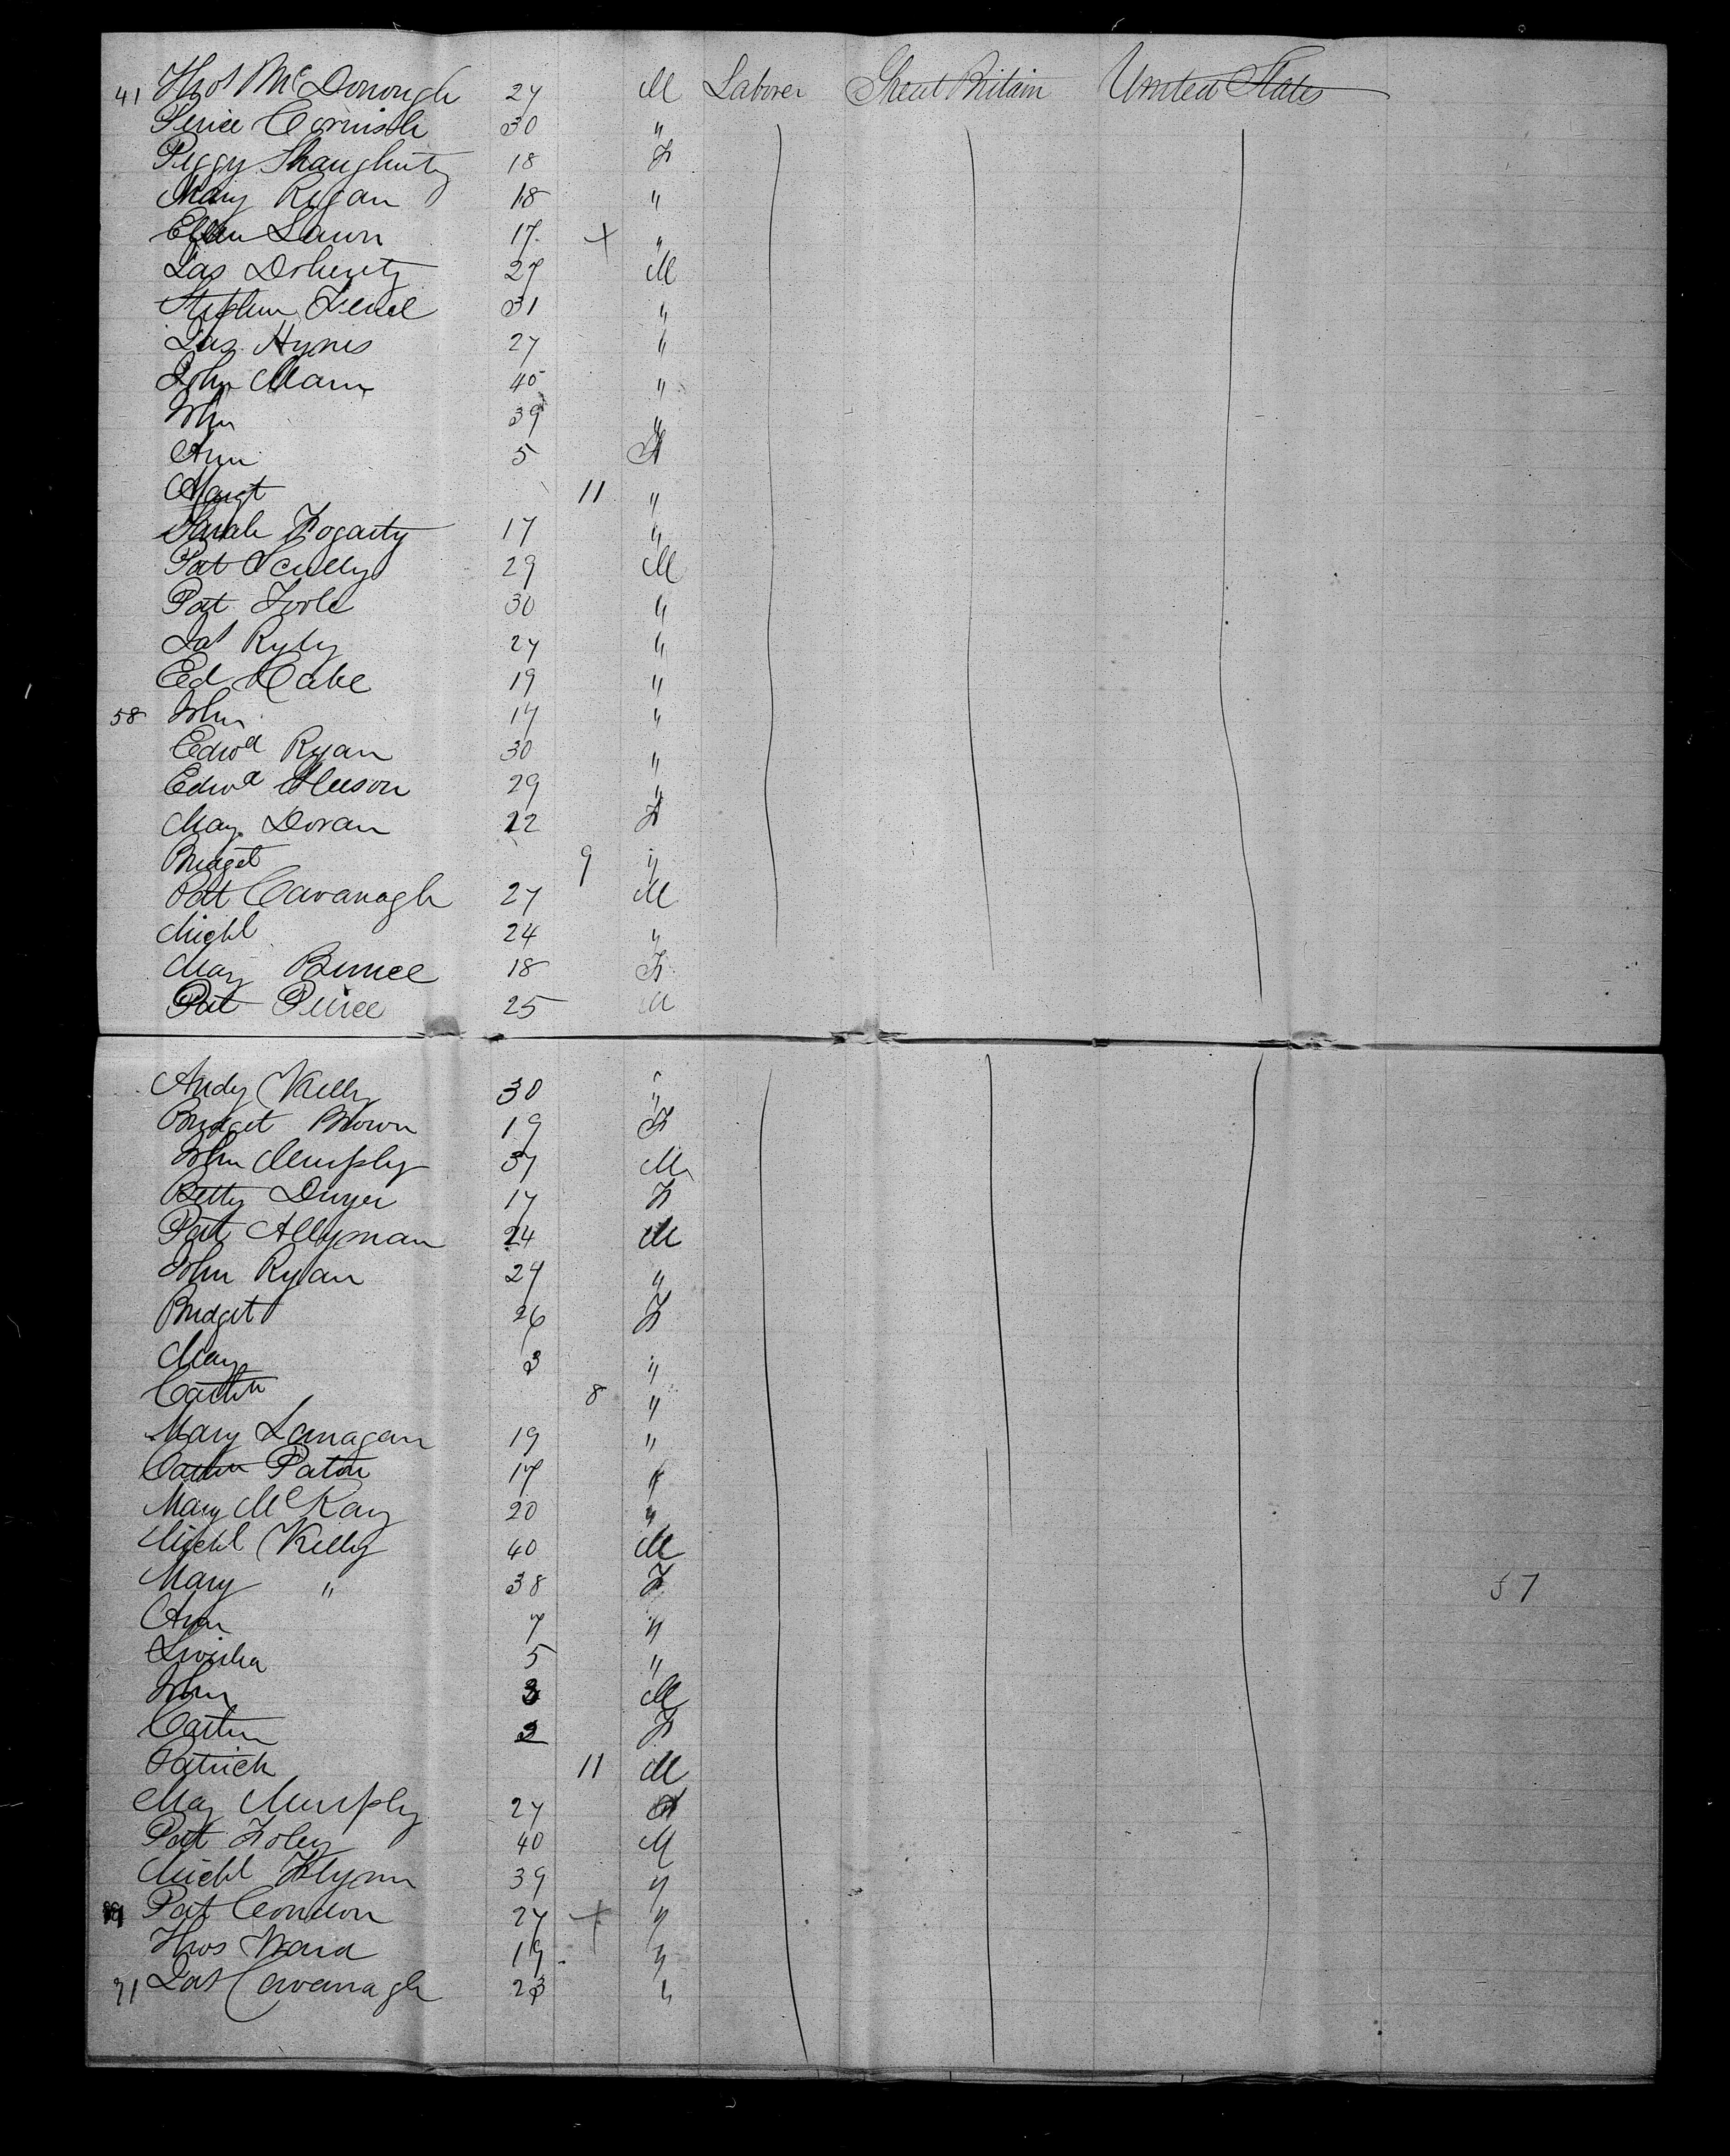 41 Thos McDonough 27 M Laborer Great Britain United States
Peirce Cornish 30 "
Peggy Shaughnty 18 F
Mary Regan 18 "
Ellen 17 + "
Jas Doherty 27 M
Stephen 31 "
Jas Hynes 27 "
John Mann 40 "
John 39 "
Ann 5 F
Margt 11 "
Sarah Fogarty 17 "
Pat Scully 29 M
Pat Toole 30 "
Jas Ryly 27 "
Ed Cabe 19 "
58 John 17 "
Edwd Ryan 30 "
Edwd Gleeson 29 "
May Doran 22 F
Bridget 9 "
Pat Cavanagh 27 M
Michl 24 "
May 18 F
Pat Peirce 25 M
Andy Kelly 30 "
Bridget Brown 19 F
John Murphy 37 M
Betty Dwyer 17 F
Pat Allyman 24 M
John Ryan 27 "
Bridget 26 F
May 3 "
Cathn 8 "
Mary Lanagan 19 "
Cathn Paton 17 "
Mary McKay 20 "
Michl Kelly 40 M
Mary " 38 F 57
Ann 7 "
5 "
John 3 M
Cathn 2 F
Patrick 11 M
May Murphy 27 F
Pat Foley 40 M
Michl Flynn 39 "
89 Pat Condon 27 + "
Thos Ward 19 "
91 Jas Cavanagh 23 "